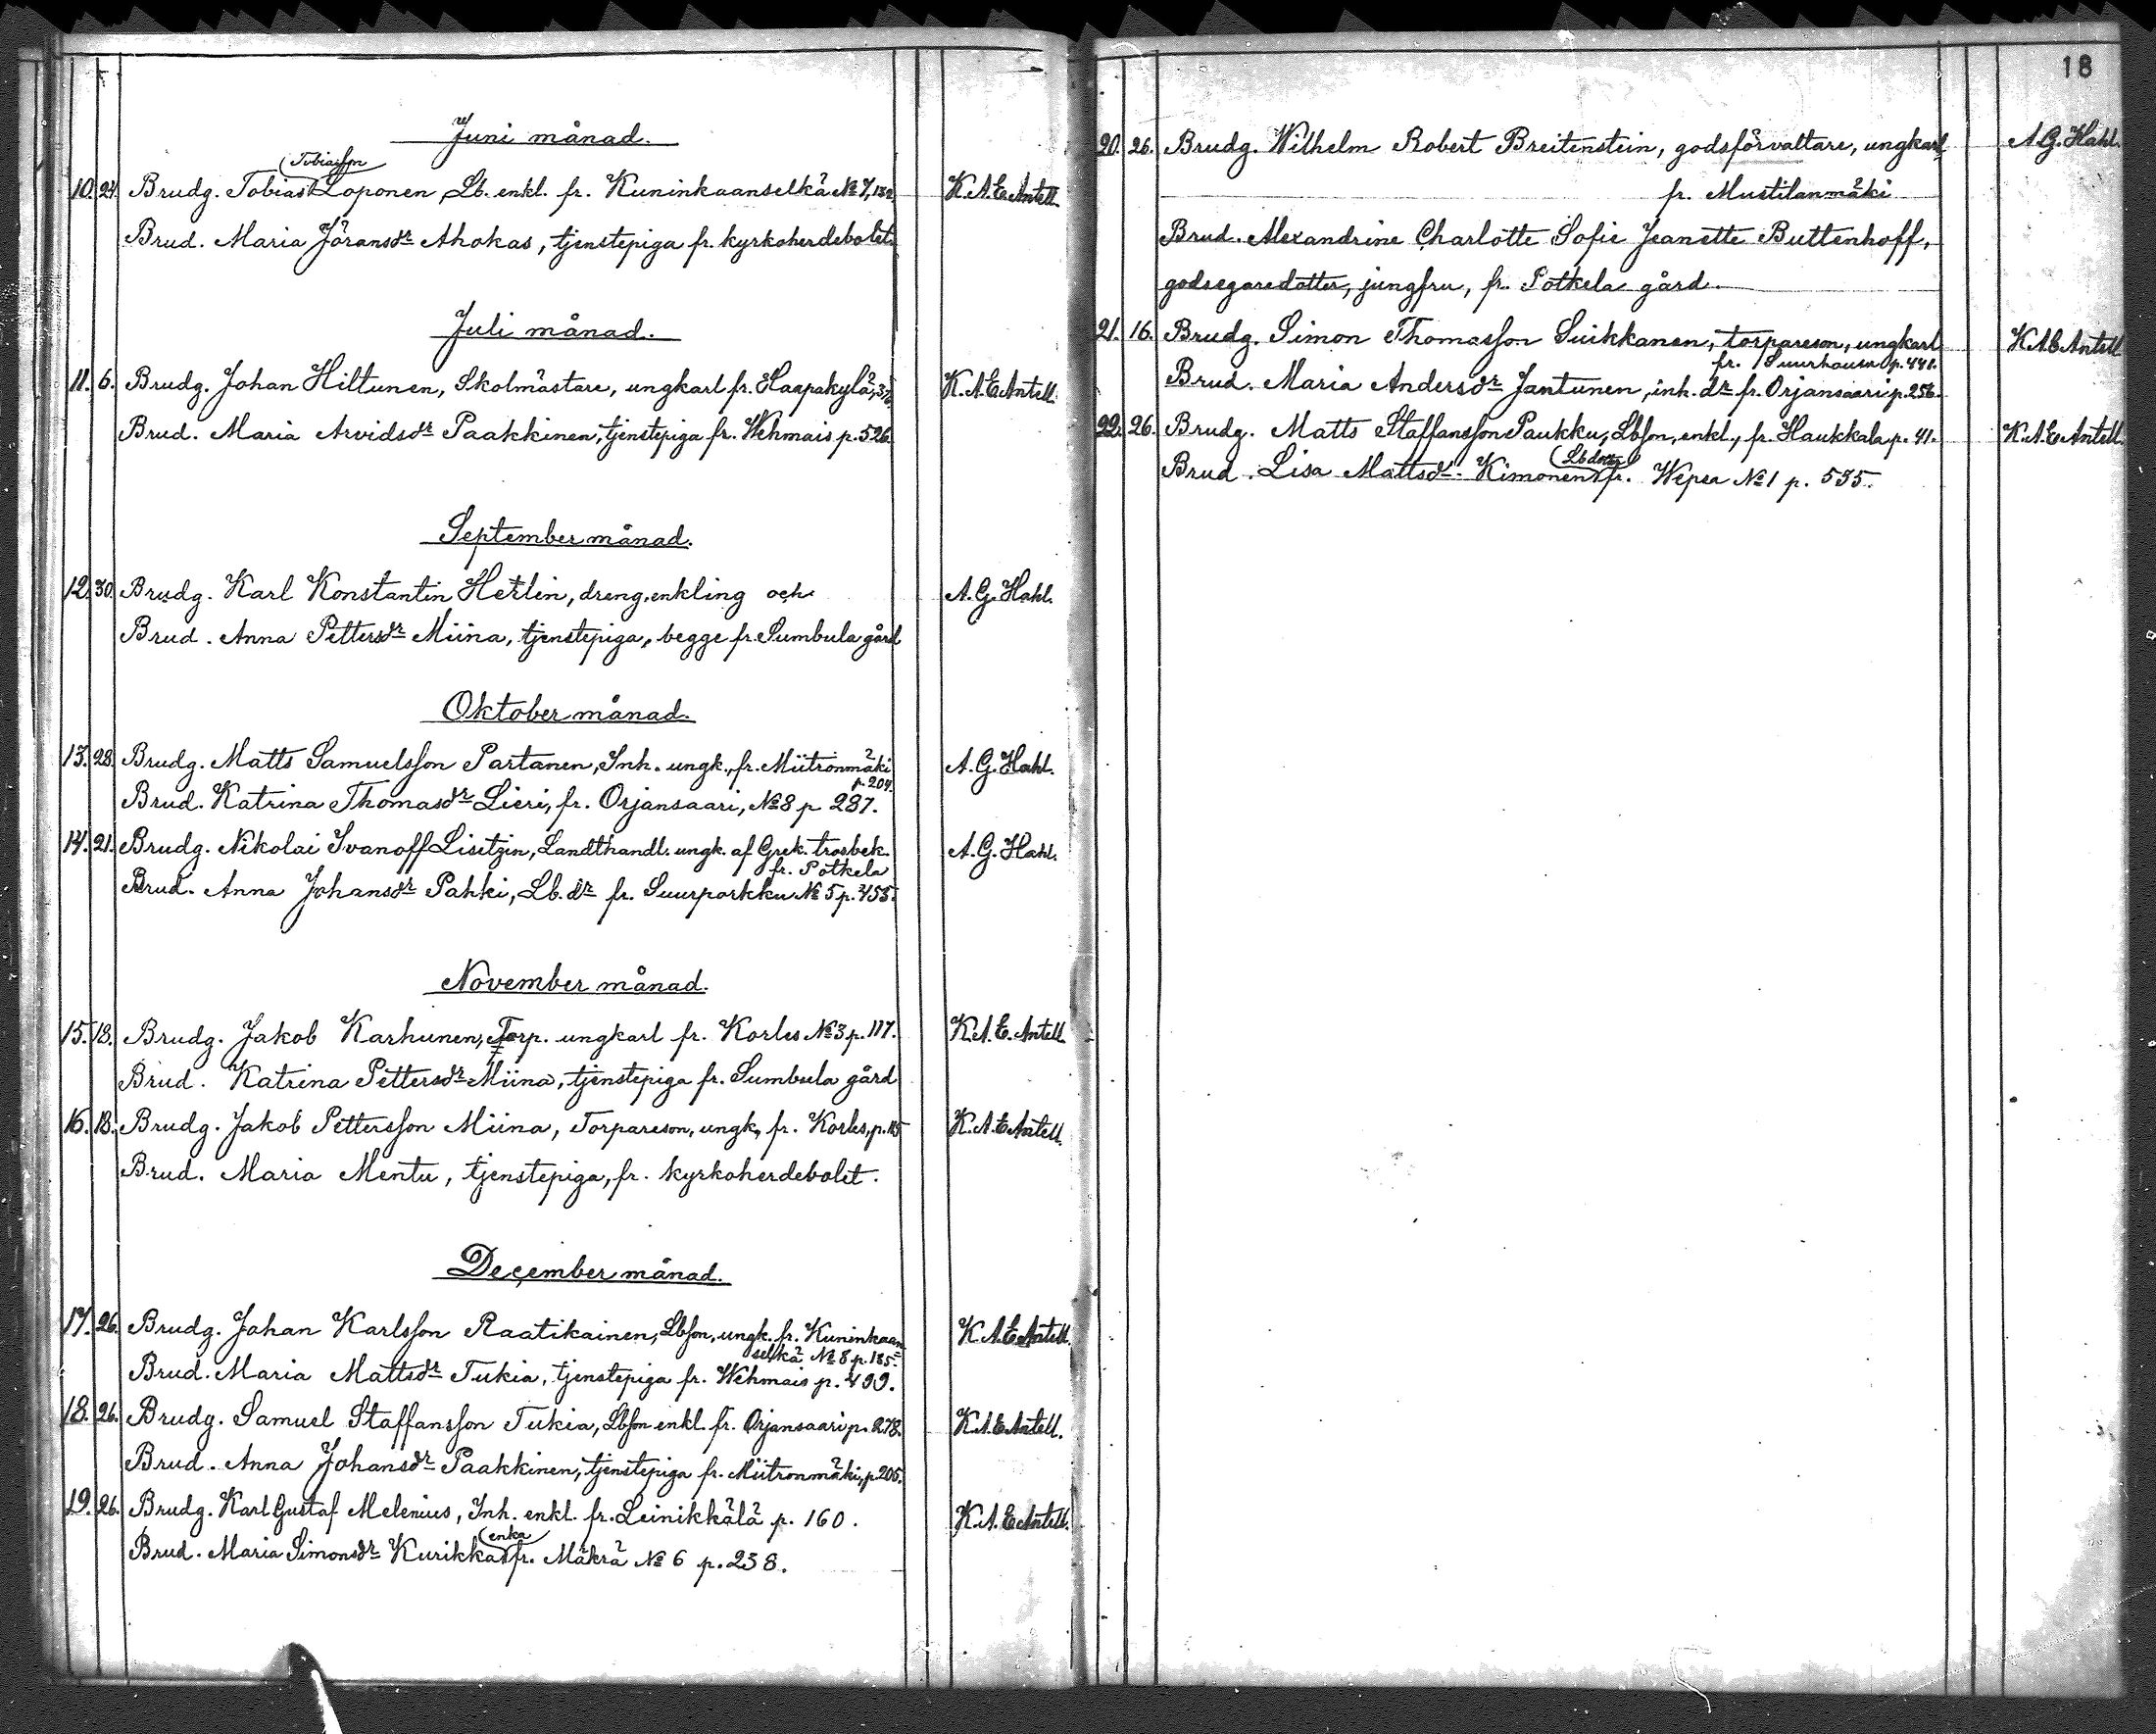 Juni månad.
Tobiasson
10. 24. Brudg. Tobias Loponen, Lb. enkl. fr. Kuninkaanselkä № 7, 132 K. A. E. Antell.
Brud. Maria Jöransdr Ahokas, tjenstepiga fr. kyrkoherdebolet.
Juli månad.
11. 6. Brudg. Johan Hiltunen, Skolmästare, ungkarl fr. Haapakylä, K. A. E. Antell.
Brud. Maria Arvidsdr Paakkinen, tjenstepiga fr. Wehmais p. 526.
September månad.
12. 30. Brudg. Karl Konstantin Herlin, dreng, enkling och A. G. Hahl.
Brud. Anna Pettersdr Miina, tjenstepiga, begge fr. Sumbula gård
Oktober månad.
13. 28. Brudg. Matts Samuelsson Partanen, Inh. ungk., fr. Miitronmäki A. G. Hahl.
p. 204.
Brud. Katrina Thomasdr Lieri, fr. Orjansaari, № 8 p 287.
14. 21. Brudg. Nikolai Ivanoff Lisitzin, Landthandl. ungk. af Grek. trosbek. A. G. Hahl.
fr. Potkela
Brud. Anna Johansdr Pahki, Lb. dr fr. Suurporkku № 5 p. 455.
November månad.
15. 18. Brudg. Jakob Karhunen, Torp. ungkarl fr. Korles № 3 p. 117. K. A. E. Antell.
Brud. Katrina Pettersdr Miina, tjenstepiga fr. Sumbula gård
16. 18. Brudg. Jakob Pettersson Miina, Torpareson, ungk, fr. Korles, p. 115 K. A. E Antell.
Brud. Maria Mentu, tjenstepiga, fr. kyrkoherdebolet.
December månad.
17. 26. Brudg. Johan Karlsson Raatikainen, Lbson, ungk. fr. Kuninkaan= K. A. E. Antell.
selkä № 8 p. 185.
Brud. Maria Mattsdr Tukia, tjenstepiga fr. Wehmais p. 499.
18. 26. Brudg. Samuel Staffansson Tukia, Lbson enkl. fr. Orjansaari p. 278. K. A. E Antell.
Brud. Anna Johansdr Paakkinen, tjenstepiga fr. Miitronmäki, p. 205.
19. 26. Brudg. Karl Gustaf Melenius, Inh. enkl. fr. Leinikkälä p. 160. K. A. E Antell.
enka
Brud. Maria Simonsdr Kurikka fr. Mäkrä № 6 p. 238.
18
20. 26. Brudg. Wilhelm Robert Breitenstein, godsförvaltare, ungkarl A. G. Hahl.
fr. Mustilanmäki
Brud. Alexandrine Charlotte Sofie Jeanette Buttenhoff,
godsegaredotter, jungfru, fr. Potkela gård.
21. 16. Brudg. Simon Thomasson Suikkanen, torpareson, ungkarl K. A. E Antell
fr. Suurhousu p. 441.
Brud. Maria Andersdr Jantunen, inh. dr fr. Orjansaari p. 256.
22. 26. Brudg. Matts Staffansson Paukku, Lbson, enkl., fr. Haukkala p. 41. K. A. E Antell.
Lb dotter
Brud. Lisa Mattsdr Kimonen fr. Wepsa № 1 p. 535.